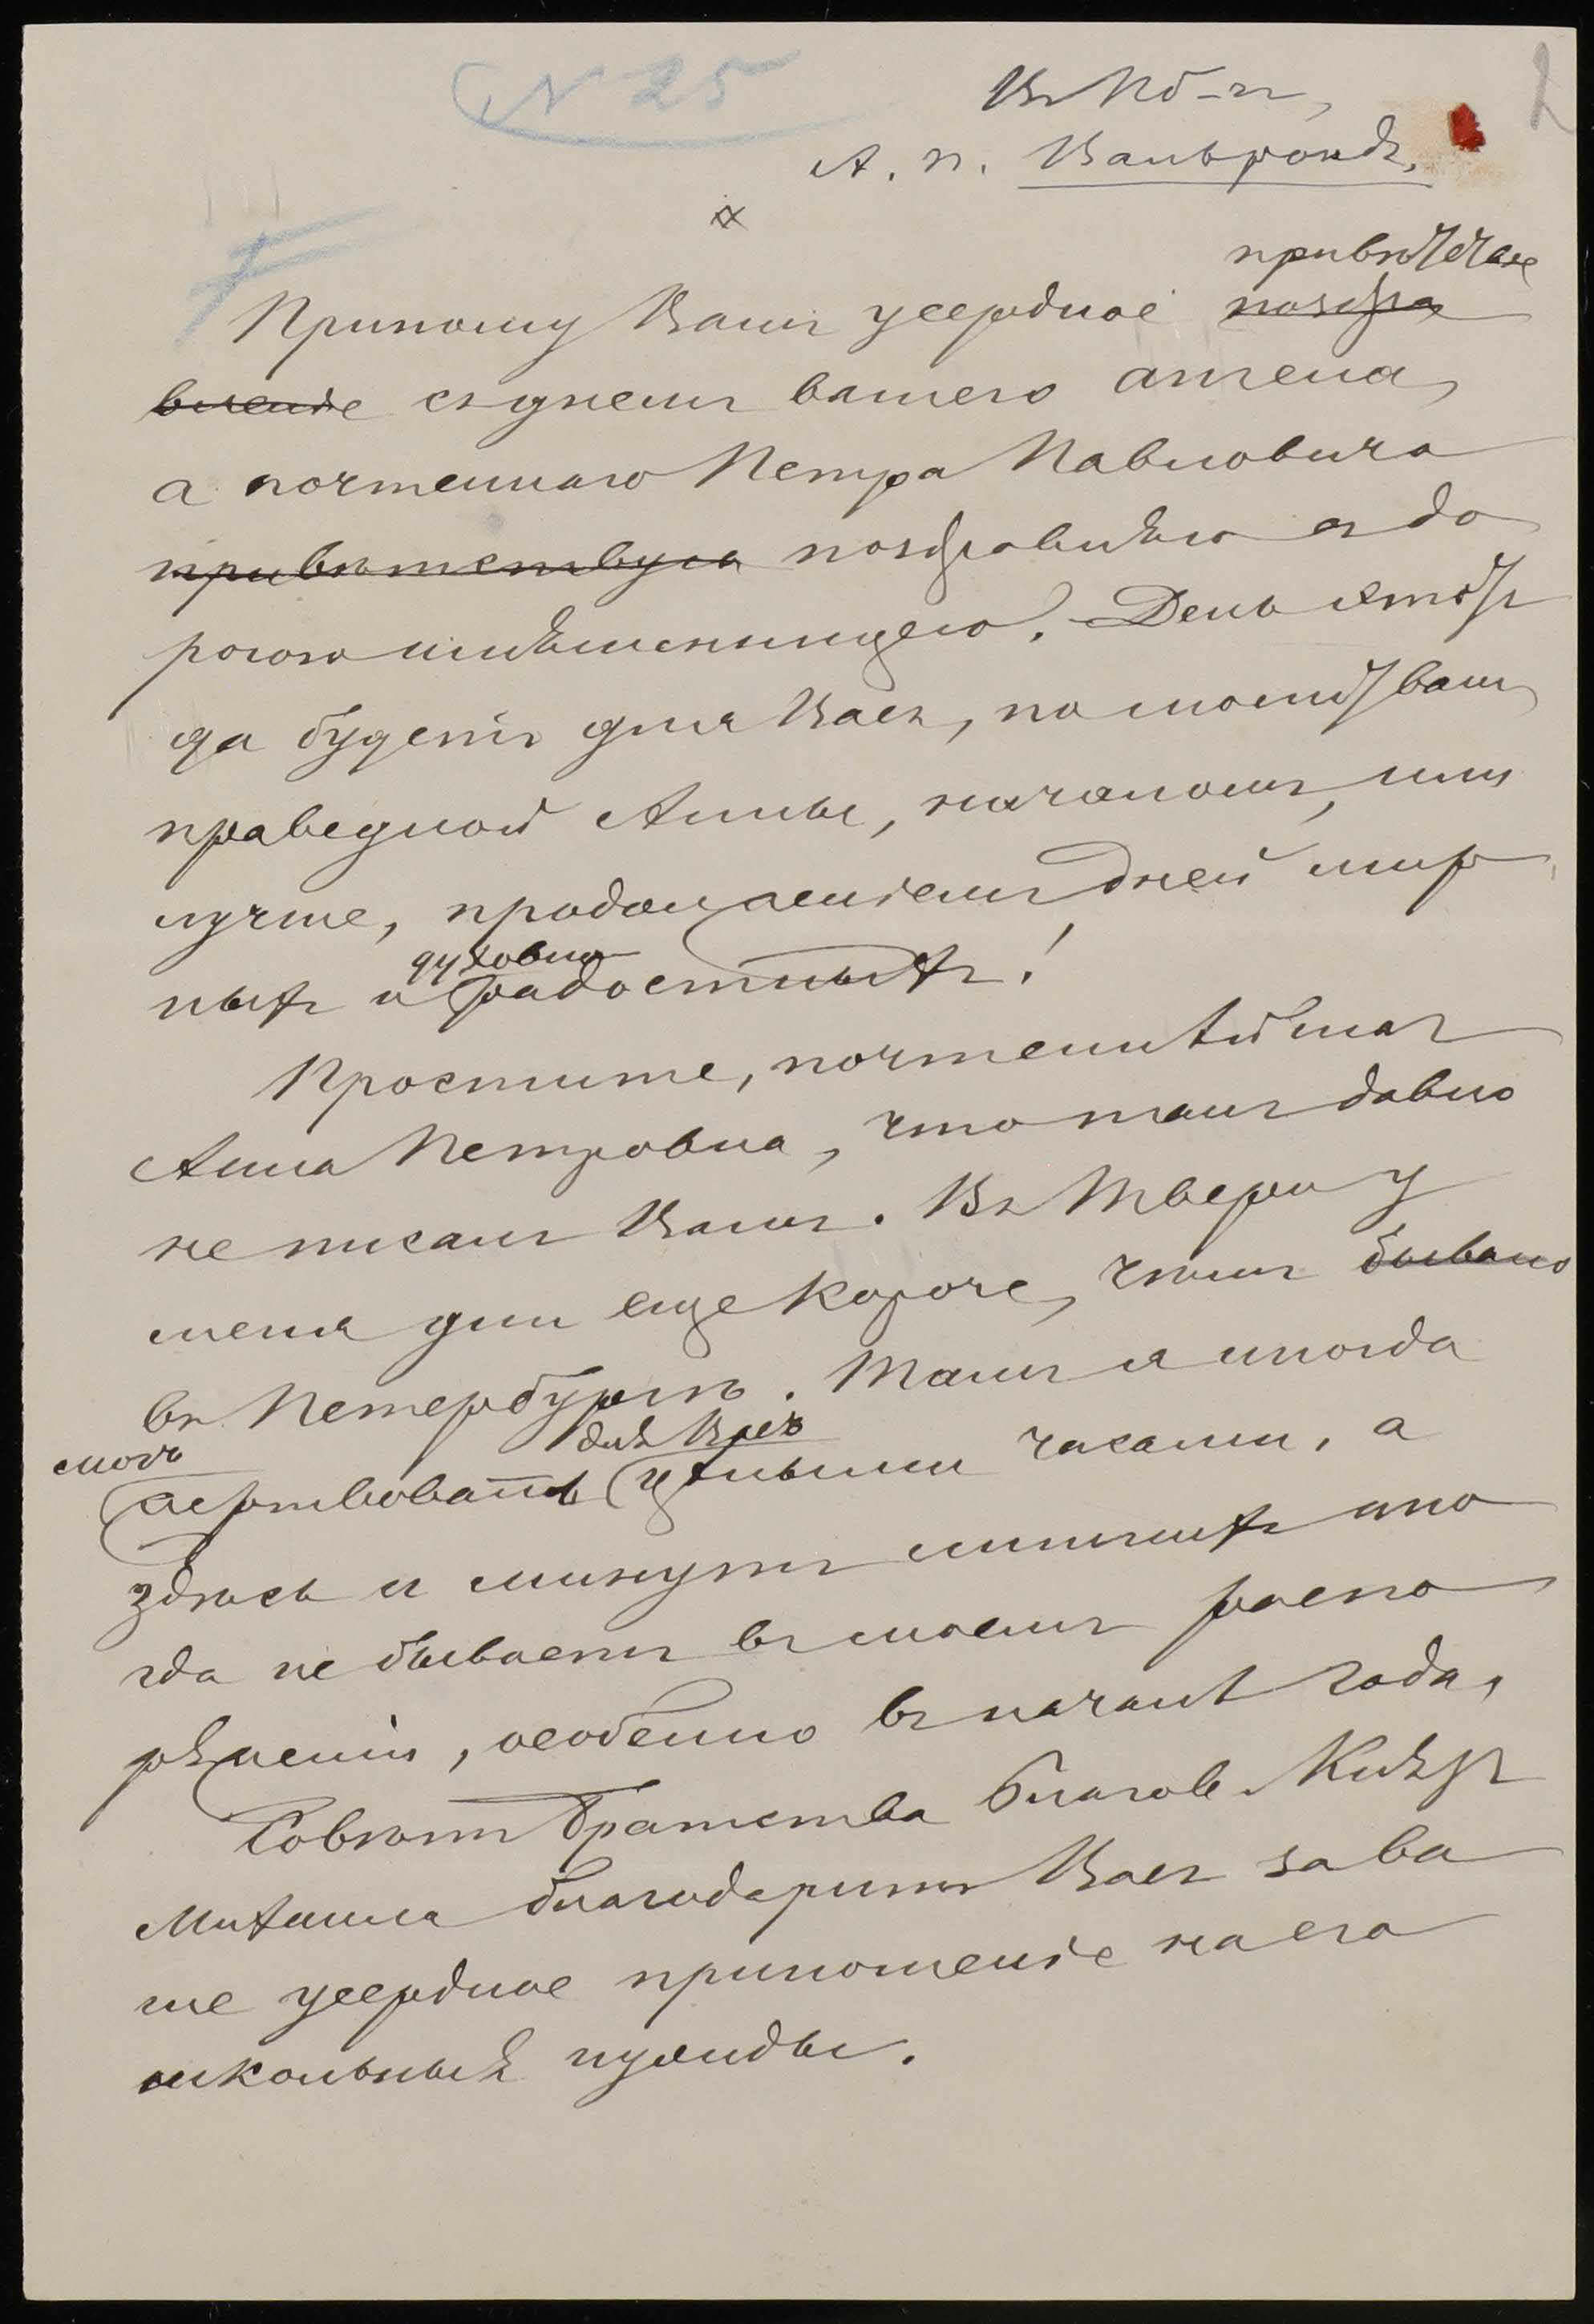 N 25
2
Въ Пб-гъ,
А. П. Вальронд.
привѣтствіе
Приношу Вамъ усердное поздра
вленіе съ днемъ вашего ангела,
а почтеннаго Петра Павловича
привѣтствую поздравляю съ до
рогою имянинницею. День этотъ
да будетъ для Васъ, по молитвам
праведной Анны, началомъ, или
лучше, продолженіемъ дней мир
духовно
ныхъ и радостныхъ!
Простите, почтеннѣйшая
Анна Петровна, что такъ давно
не писалъ Вамъ. Въ Твери у
меня дни еще короче, чѣмъ бывало
въ Петербургѣ. Тамъ я иногда
могъ для Васъ
жертвовать цѣлыми часами, а
здѣсь и минутъ лишнихъ ино
гда не бываетъ въ моемъ распо
ряженіи, особенно въ началѣ года.
Совѣтъ Братства Благов. Князя
Михаила благодаритъ Васъ за ва
ше усердное приношеніе на его
школьныя нужды.